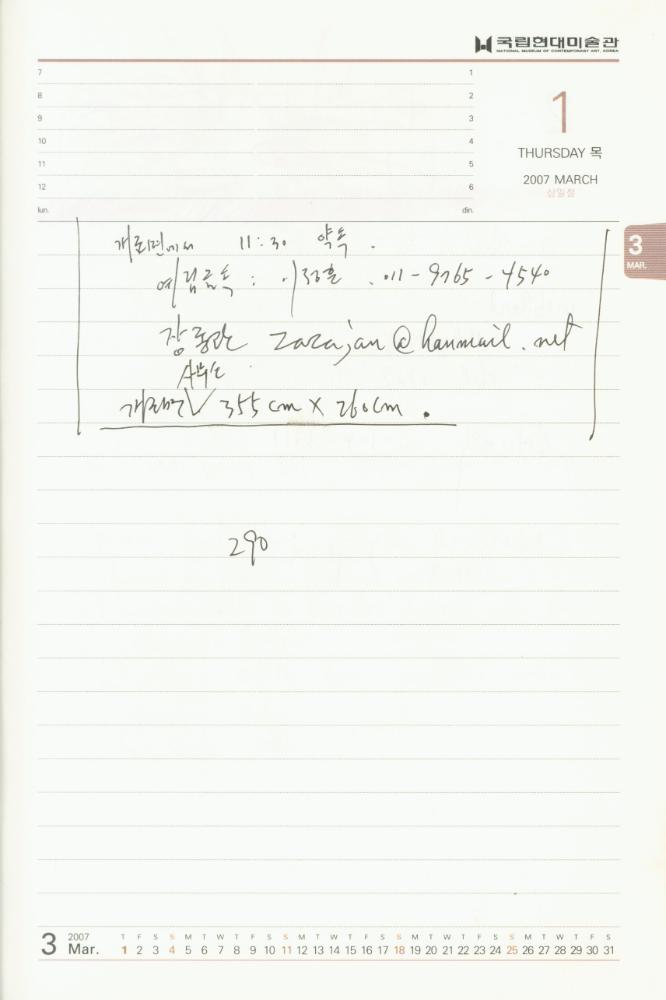 국립현대미술관
NATIONAL MUSEUM OF CONTEMPORARY ART, KOREA
7 1
8 2
9 3
10 4
11 5
12 6
lun. din.
1
THURSDAY 목
2007 MARCH
삼일절
3
MAR.
11:30 약속.
예림글속 : 이강훈 . 011-9765-4540
장동란 zarajan@hanmail.net
355cm X 260cm.
290
3 2007 Mar.
T F S S M T W T F S S M T W T F S S M T W T F S S M T W T F S
1 2 3 4 5 6 7 8 9 10 11 12 13 14 15 16 17 18 19 20 21 22 23 24 25 26 27 28 29 30 31